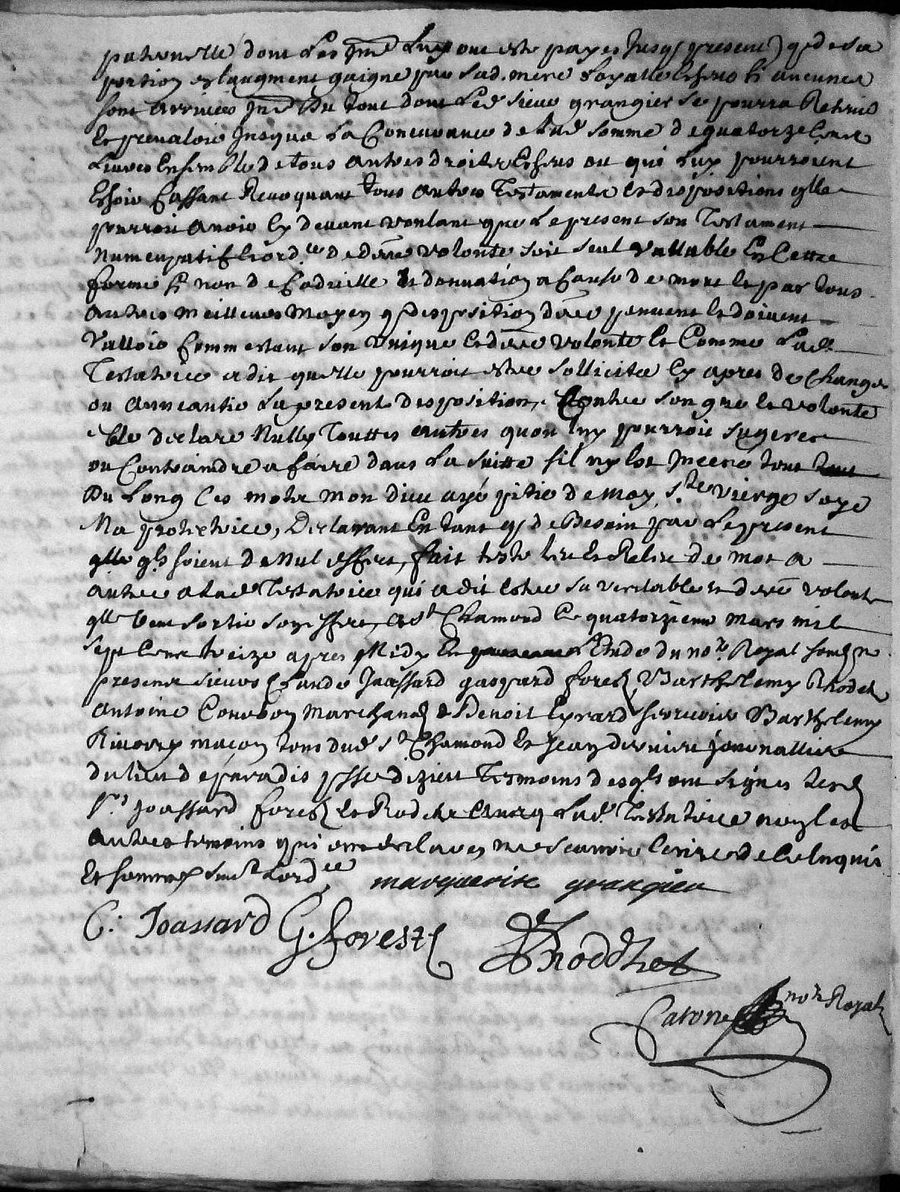 paternelle dont les Luy ont este payes Jusq present, q de sa
portion et augment gaigne par sad. mere Loyalle Esfrus sy aucunes
sont arrivees Du tout dont Led sieur grangier se pourra Retenir
Et prevaloir Jusqua La Concurance de lad somme de quatorze Cent
Livres Ensemble de tous autres droits Esfrus ou qui Luy pourroient
Eschoir Cassant Revoquant tous autres Testaments et dispositions qlle
pourroit avoir Cy devant voulant que Le present son Testament
Numcupatif et ord.ce de dere volonte soit seul vallable En Cette
forme sy non de Codicille Et donnation a Cause de mort Et par tous
autres meilleurs moyen q disposition dere peuvent Et doivent
Valloir Comm estant son unique Et dere volonte Et Comme Lad.
Testatrice a dit quelle pourroit estre sollicitee Cy apres de Changer
ou anneantir La presente disposition, Contre son gre Et volonte
Elle declare Nulles Touttes autres quon luy pourroit sugerer
ou Contraindre a faire dans La suitte sil ny est Jncere tout
Du Long Ces mots mon dieu aye pitie de moy, ste vierge soye
Ma protectrice, Declarant En tant q de Besoin par Le present
qlle qls soient de Nul effect, fait leu et Releu de mot a
autre a Lad Testatrice qui a dit estre sa veritable et dere volonte
qlle veut sortir son effet, a St Chamond Le quatorzieme mars mil
sept Cent treize apres Midy En Etude du nore Royal soussigne
presents sieurs Claude Joassard gaspard forest, Barthelemy Rhodet
Antoine Courbon Marchands Benoit Eyrard serrurier Barthelemy
Rivoyry maçon tous dud St Chamond Et Jean dernieri journallier
du lieu de paradis psse dizieu Tesmoins desqls ont signes Lesd
srs Joassard forest Et Rodet avecq Lad. Testatrice non Les
autres tesmoins qui ont declares ne scavoir Ecrire de Ce Enquis
Et sommes suivt Lord.ce marguerite grangier
C. Joassard G. forest BRoddhet
Carone nore Royal